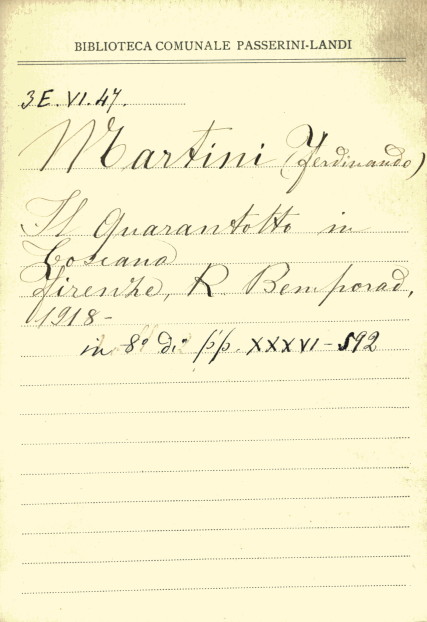 BIBLIOTECA COMUNALE PASSERINI-LANDI
3E.VI.47.
Martini (Ferdinando)
Il Quarantotto in
Toscana
Firenze, R Bemporad,
1918-
in 8º di pp. XXXVI-592